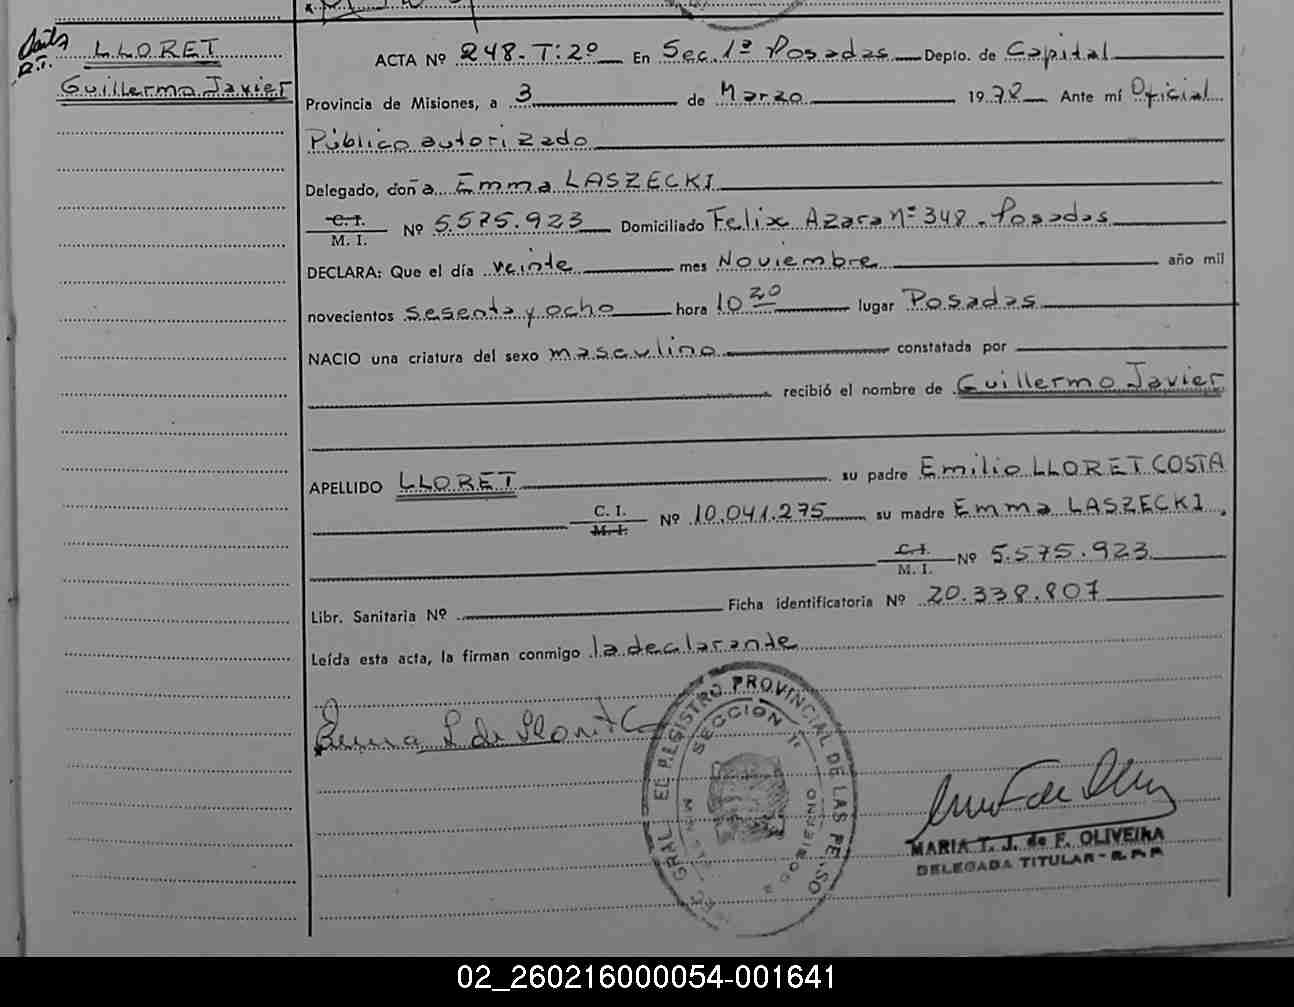 LLORET
Guillermo Javier
ACTA Nº 248.T:2º En Sec. 1ª Posadas Depto. de Capital
Provincia de Misiones, a 3 de Marzo 1972 Ante mí Oficial
Público autorizado
Delegado, doña Emma LASZECKI
C. I.
M. I. Nº 5.575.923 Domiciliado Felix Azara nº 348. Posadas
DECLARA: Que el día veinte mes Noviembre año mil
novecientos sesenta y ocho hora 10 20 lugar Posadas
NACIO una criatura del sexo masculino constatada por
recibió el nombre de Guillermo Javier
APELLIDO LLORET su padre Emilio LLORET COSTA
C. I.
M. I. Nº 10.041.275 su madre Emma LASZECKI,
C. I.
M. I. Nº 5.575.923
Libr. Sanitaria Nº Ficha identificatoria Nº 20.338.807
Leída esta acta, la firman conmigo la declarante
EL REGISTRO PROVINCIAL DE LAS
SECCION 1ª
MARIA T. J. de F. OLIVEIRA
DELEGADA TITULAR - R.P.P.
02_260216000054-001641